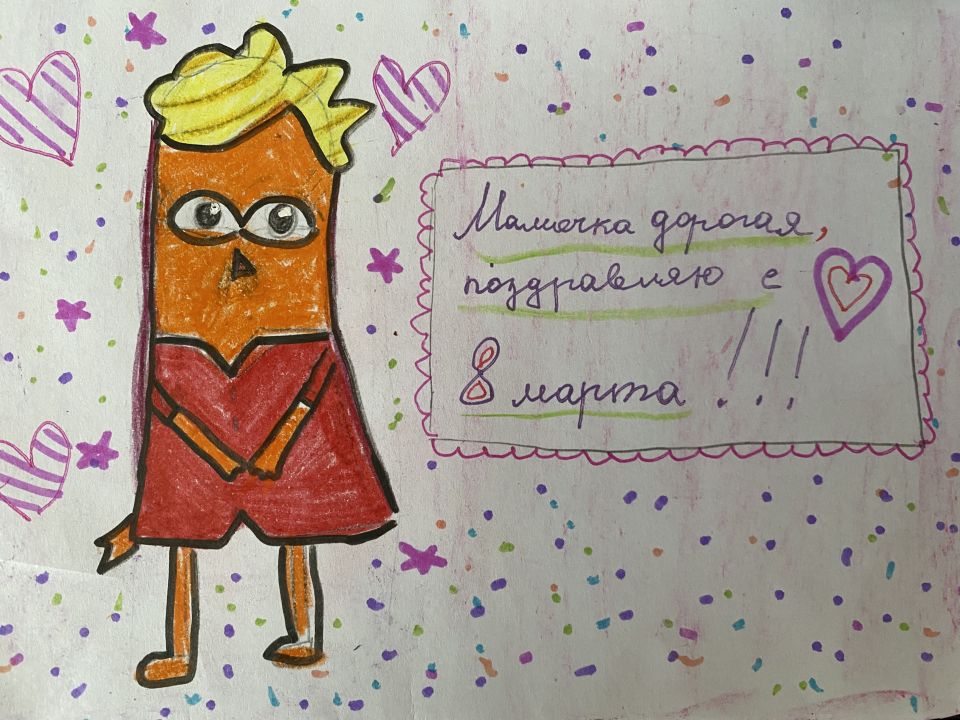 Мамочка дорогая,
поздравляю с
8 марта !!!